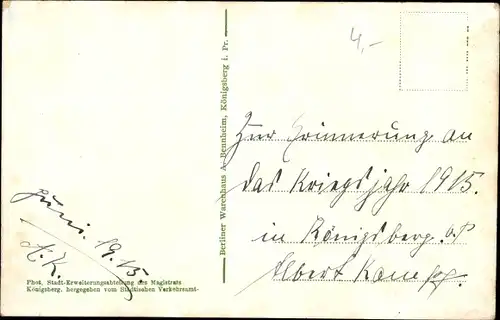 4,-
Zur Erinnerung an
das Kriegsjahr 1915.
in Königsberg. o/P
Albert Kampf.
Juni. 1915
A.K.
Berliner Warenhaus A. Bennheim, Königsberg i. Pr.
Phot. Stadt-Erweiterungsabteilung des Magistrats
Königsberg, hergegeben vom Städtischen Verkehrsamt-